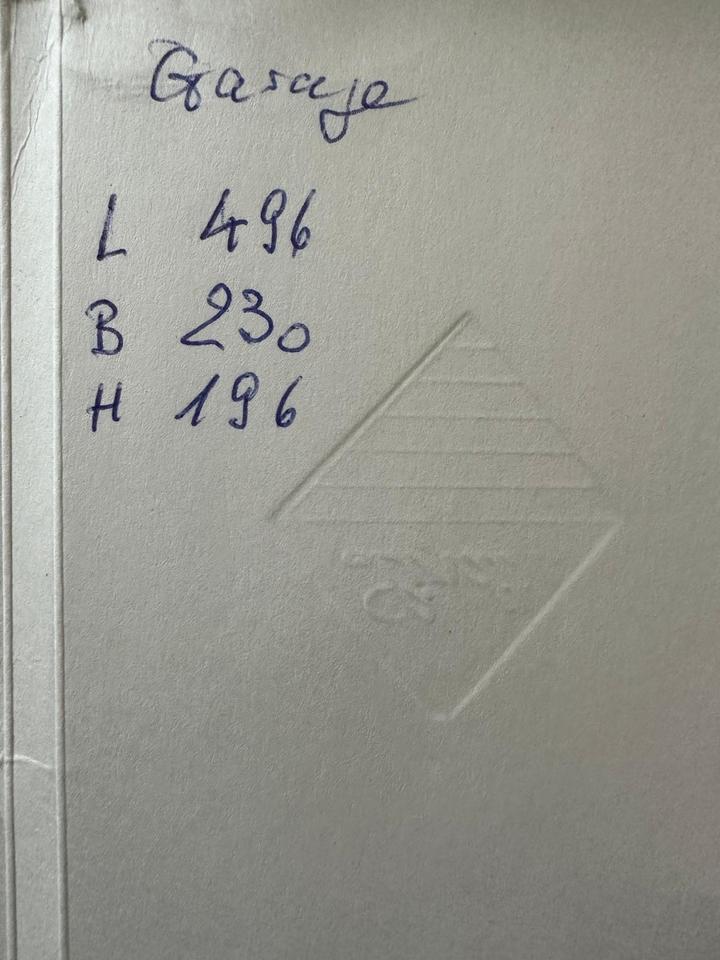 Garaje
L 496
B 230
H 196